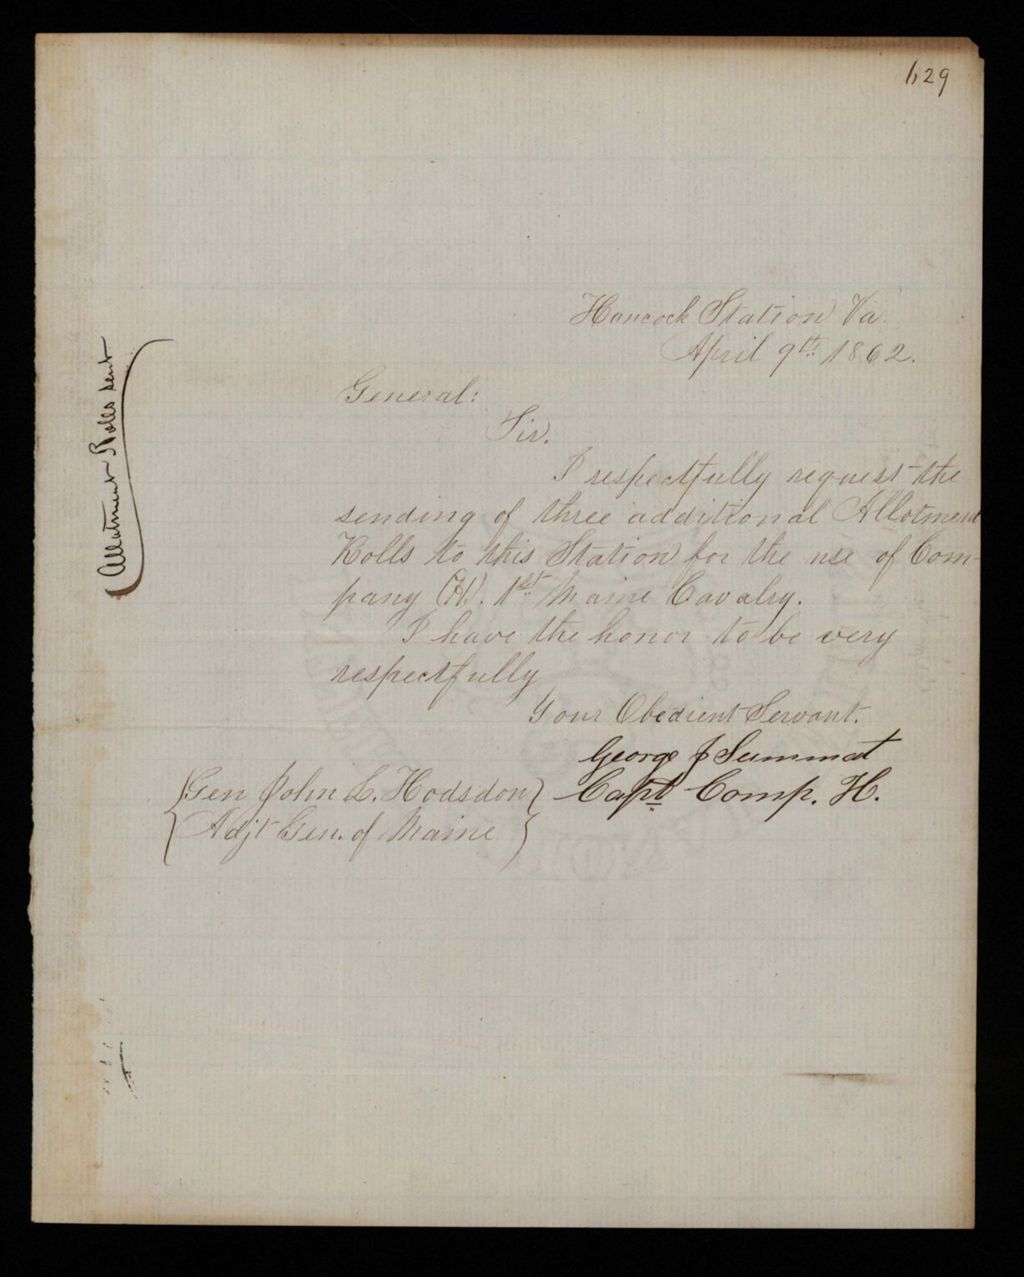 629
Hancock Station Va.
April 9th 1862.
General:
Sir.
I respectfully request the
sending of three additional Allotment
Rolls to this Station for the use of Com-
pany (H). 1st Maine Cavalry.
I have the honor to be very
respectfully
Your Obedient Servant.
George J Summat
Capt Comp. H.
Gen John L. Hodsdon
Adjt Gen. of Maine
Allotment Rolls sent